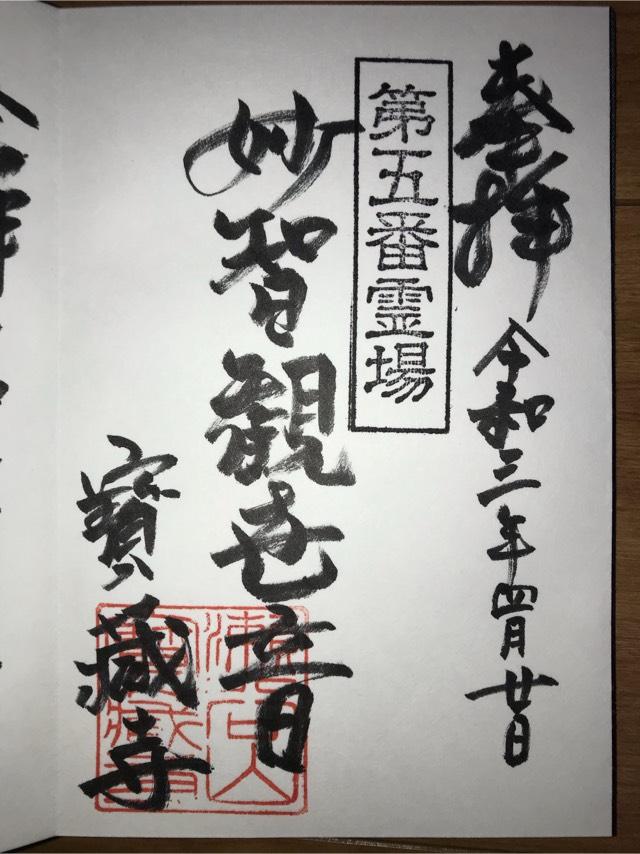 奉拝
令和三年四月廿日
第五番霊場
妙智觀世音
寳藏寺